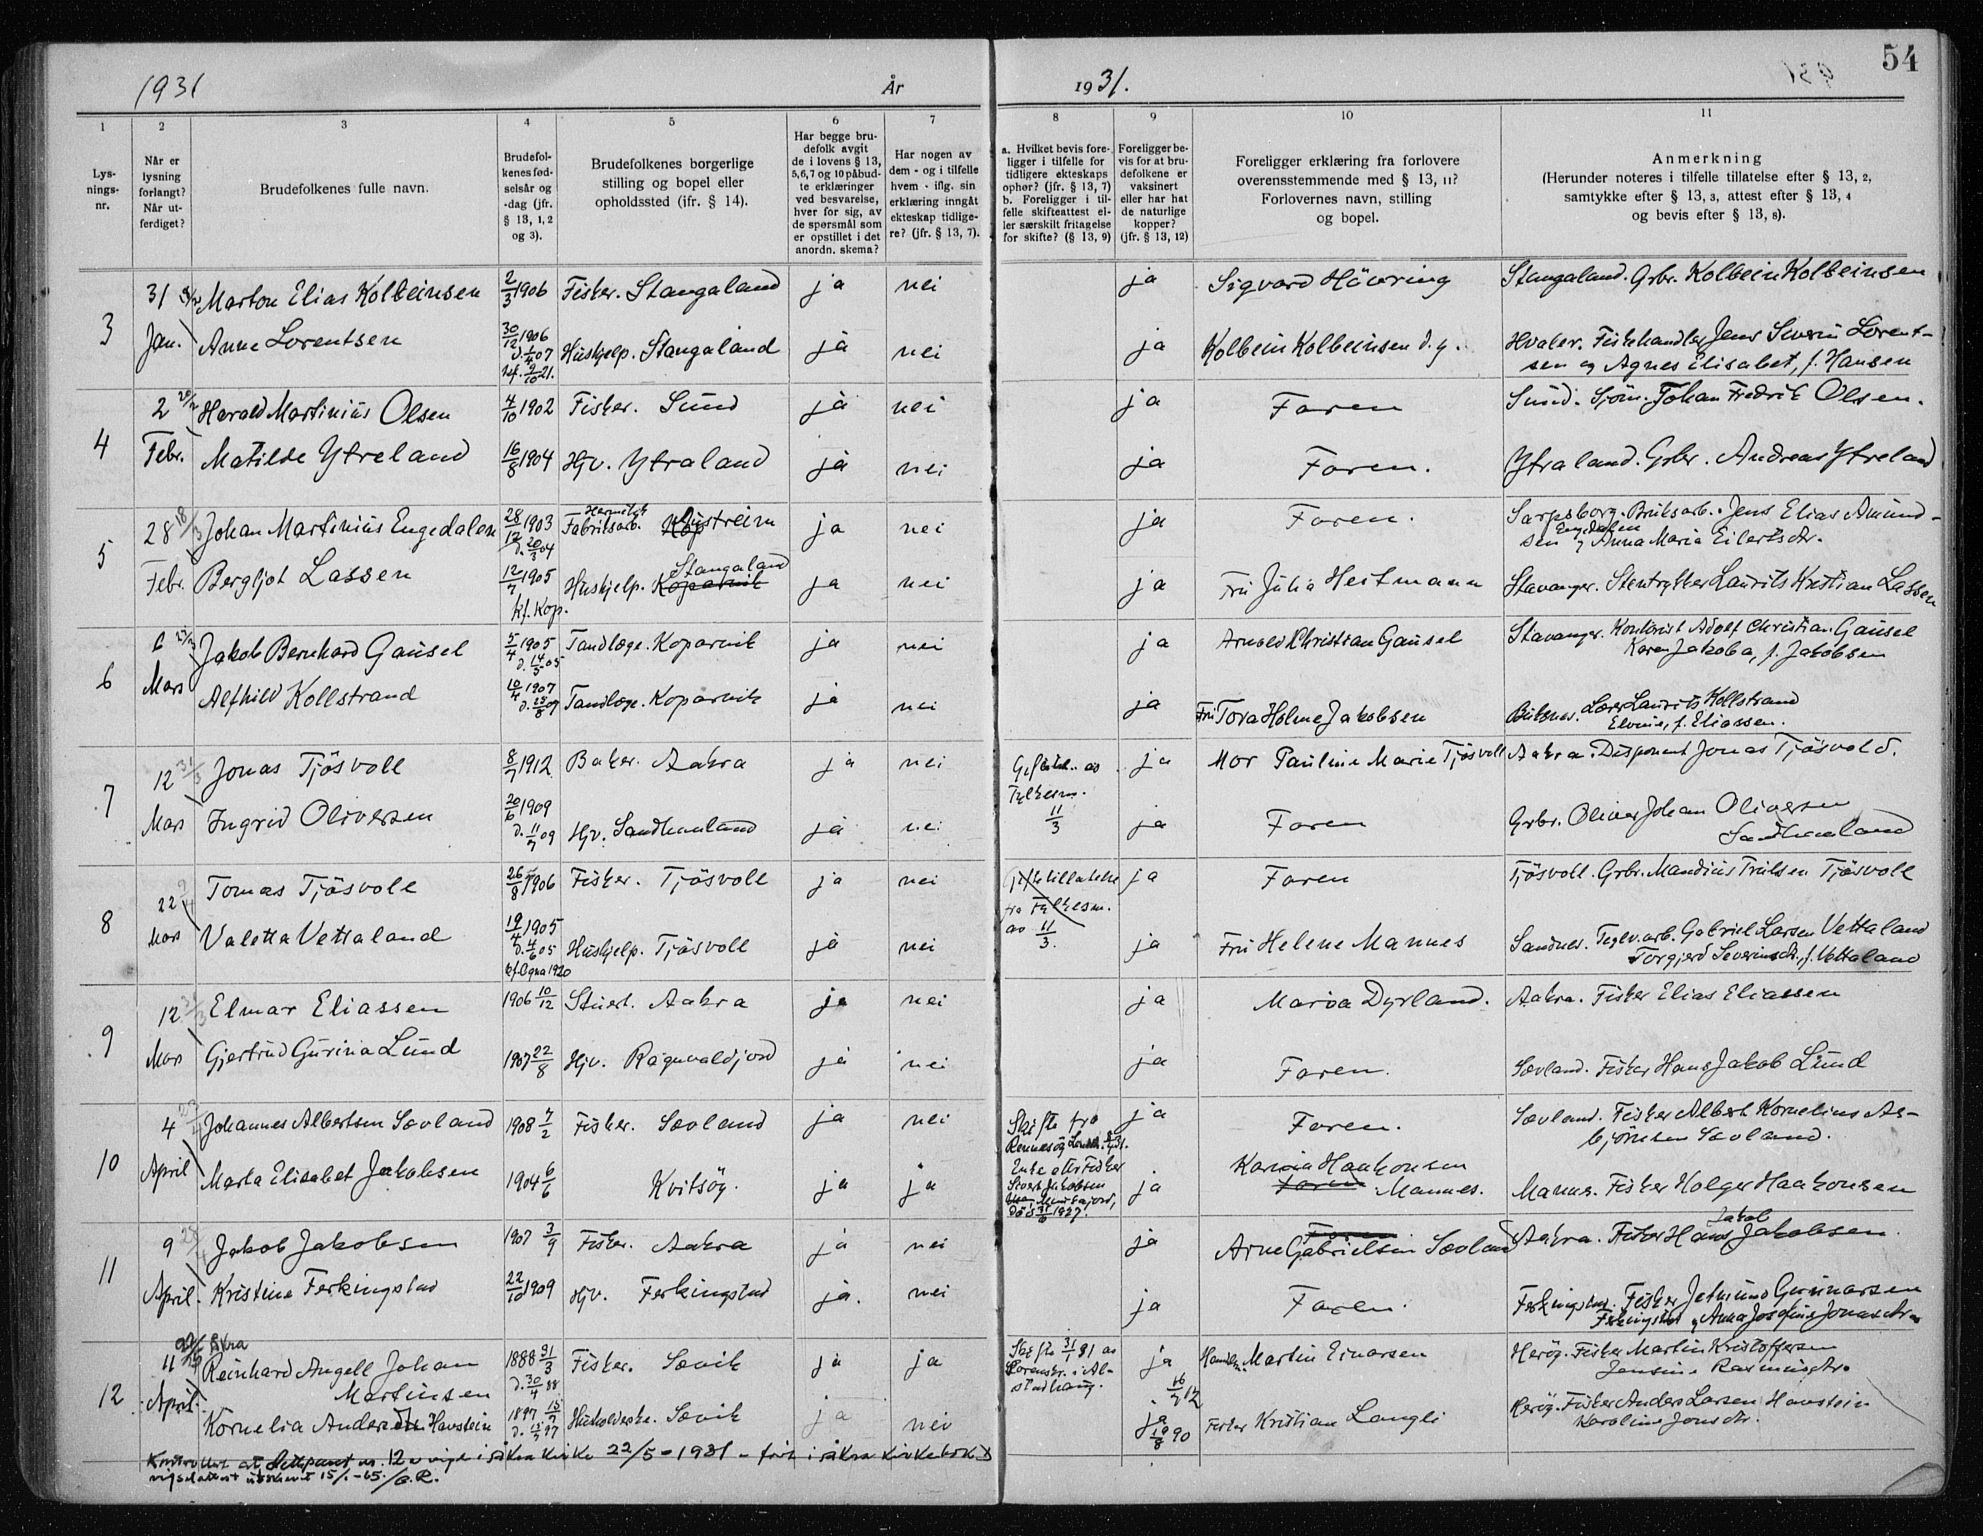 1931
År
1931.
54
1
2
3
4
5
6
7
8
9
10
11
Lys-
nings-
nr.
Når er
lysning
forlangt?
Når ut-
ferdiget?
Brudefolkenes fulle navn.
Brudefol-
kenes fød-
selsår og
-dag (jfr.
§ 13, 1, 2
og 3).
Brudefolkenes borgerlige
stilling og bopel eller
opholdssted (ifr. § 14).
Har begge bru-
defolk avgit
de i lovens § 13,
5,6,7 og 10 påbud-
te erklæringer
ved besvarelse,
hver for sig, av
de spørsmål som
er opstillet i det
anordn. skema?
Har nogen av
dem - og i tilfelle
hvem - iflg. sin
erklæring inngåt
ekteskap tidlige-
re? (jfr. § 13, 7).
a. Hvilket bevis fore-
ligger i tilfelle for
tidligere ekteskaps
ophør? (jfr. § 13, 7)
b. Foreligger i til-
felle skifteattest el-
ler særskilt fritagelse
for skifte? (§ 13, 9)
Foreligger be-
vis for at bru-
defolkene er
vaksinert
eller har hat
de naturlige
kopper?
(jfr. § 13, 12)
Foreligger erklæring fra forlovere
overensstemmende med § 13, 11?
Forlovernes navn, stilling
og bopel.
Anmerkning
(Herunder noteres i tilfelle tillatelse efter § 13, 2,
samtykke efter § 13, 3, attest efter § 13, 4
og bevis efter § 13, 8).
3 31 Marton Elias Kolbeinsen 2/3 1906 Fisker. Stangaland ja nei ja Sigvard Hövring Stangaland. Grbr. Kolbein Kolbeinsen
Jan. Anne Lorentsen 30/12 1906 Hushjelp. Stangaland ja nei ja Kolbein Kolbeinsen d.y. Hvaler. Fiskehandler Jens Severin Lorent-
sen og Agnes Elisabet, f. Hansen
4 2 Harald Martinius Olsen 4/10 1902 Fisker. Sund ja nei ja Faren Sund. Sjöm. Johan Fredrik Olsen.
Febr. Matilde Ytreland 16/8 1904 Hjv. Ytraland ja nei ja Faren. Ytraland. Grbr. Andreas Ytreland
5 28 18/3 Johan Martinius Engedalen 28/12 1903 Fabrikarb. ja nei ja Faren. Sarpsborg. Bruksarb. Jens Elias Amund-
sen Engedalen og Anna Maria Eilertsdtr.
Stangaland
Febr. Bergljot Lassen 12/7 1905 Hushjelp. Kopervik ja nei ja Fru Julia Heitmann Stavanger. Stentrykker Laurits Kristian Lassen
kf. Kop.
6 6 Jakob Bernhard Gausel 5/4 1905 Tandlæge. Kopervik ja nei ja Arnold Christian Gausel Stavanger. Kontorist Adolf Christian Gausel
Karen Jakoba, f. Jakobsen
Mars Alfhild Kollstrand 10/4 1907 Tandlæge. Kopervik ja nei ja Fru Tora Holme Jakobsen Lærer Laurits Kollstrand
f. Eliassen.
7 12 31/3 Jonas Tjösvoll 8/7 1912 Baker. Aakra ja nei ja Mor Pauline Marie Tjösvoll Aakra. Disponent Jonas Tjösvold.
11/3
Mars Ingrid Oliversen 20/6 1909 d. 11/7 09 Hjv. Sandhaaland ja nei ja Faren Grbr. Oliver Johan Oliversen
Sandhaaland
8 22 Tomas Tjösvoll 26/8 1906 Fisker. Tjösvoll ja nei Giftetillatelse ja Faren Tjösvoll. Grbr. Mandius Trulsen Tjösvoll
fra Fylkesm.
av 11/3.
Mars Valetta Vettaland 19/4 1905 d. 4/6 05 Hushjelp. Tjösvoll ja nei ja Fru Helene Mannes Sandnes. Teglv.arb. Gabriel Larsen Vettaland
kf. Ogna 1920 Torgjerd Severinsdtr., f. Vettaland
9 12 31/3 Elmar Eliassen 1906 10/12 Stuert. Aakra ja nei ja Maria Dyrland. Aakra. Fisker Elias Eliassen
Mars Gjertrud Gurina Lund 1907 22/8 Hjv. Ragnvaldjord ja nei ja Faren. Sævland. Fisker Hans Jakob Lund
10 4 Johannes Albertsen Sævland 1908 7/2 Fisker. Sævland ja nei Skifte fra ja Faren. Sævland. Fisker Albert Kornelius As-
björnsen Sævland.
Enke etter Fisker
Sivert Jakobsen
1927.
April Marta Elisabet Jakobsen 1904 6/6 Kvitsöy. ja ja ja Karina Haakonsen Mannes. Mannes. Fisker Holger Haakonsen
11 9 Jakob Jakobsen 1907 3/9 Fisker. Aakra ja nei ja Faren Arne Gabrielsen Sævland Aakra. Fisker Hans Jakob Jakobsen.
April. Kristine Ferkingstad 22/10 1909 Hjv. Ferkingstad ja. nei ja Faren. Ferkingstad. Fisker Jetmund Gunnarsen
Ferkingstad og Anna Josefine Jonasdtr.
12 11 Reinhard Angell Johan 1888 31/3 Fisker. Sævik ja ja Skifte ja Martin Einarsen Heröy. Fisker Martin Kristoffersen
Martinsen d. 30/4 88 Jensine Rasmusdtr.
16/7 12
April. Kornelia Andersdtr. Havstein 1897 15/7 Sævik ja nei ja Fisker Kristian Langli Heröy. Fisker Anders Larsen Havstein
19/8 90 Karoline Jonsdtr.
Kontrollert at nr. 12 er viget i Åkra kirke 22/5-1931 - fört i Åkra kirkebok
vigselattest utskrevet 15/1.-65./